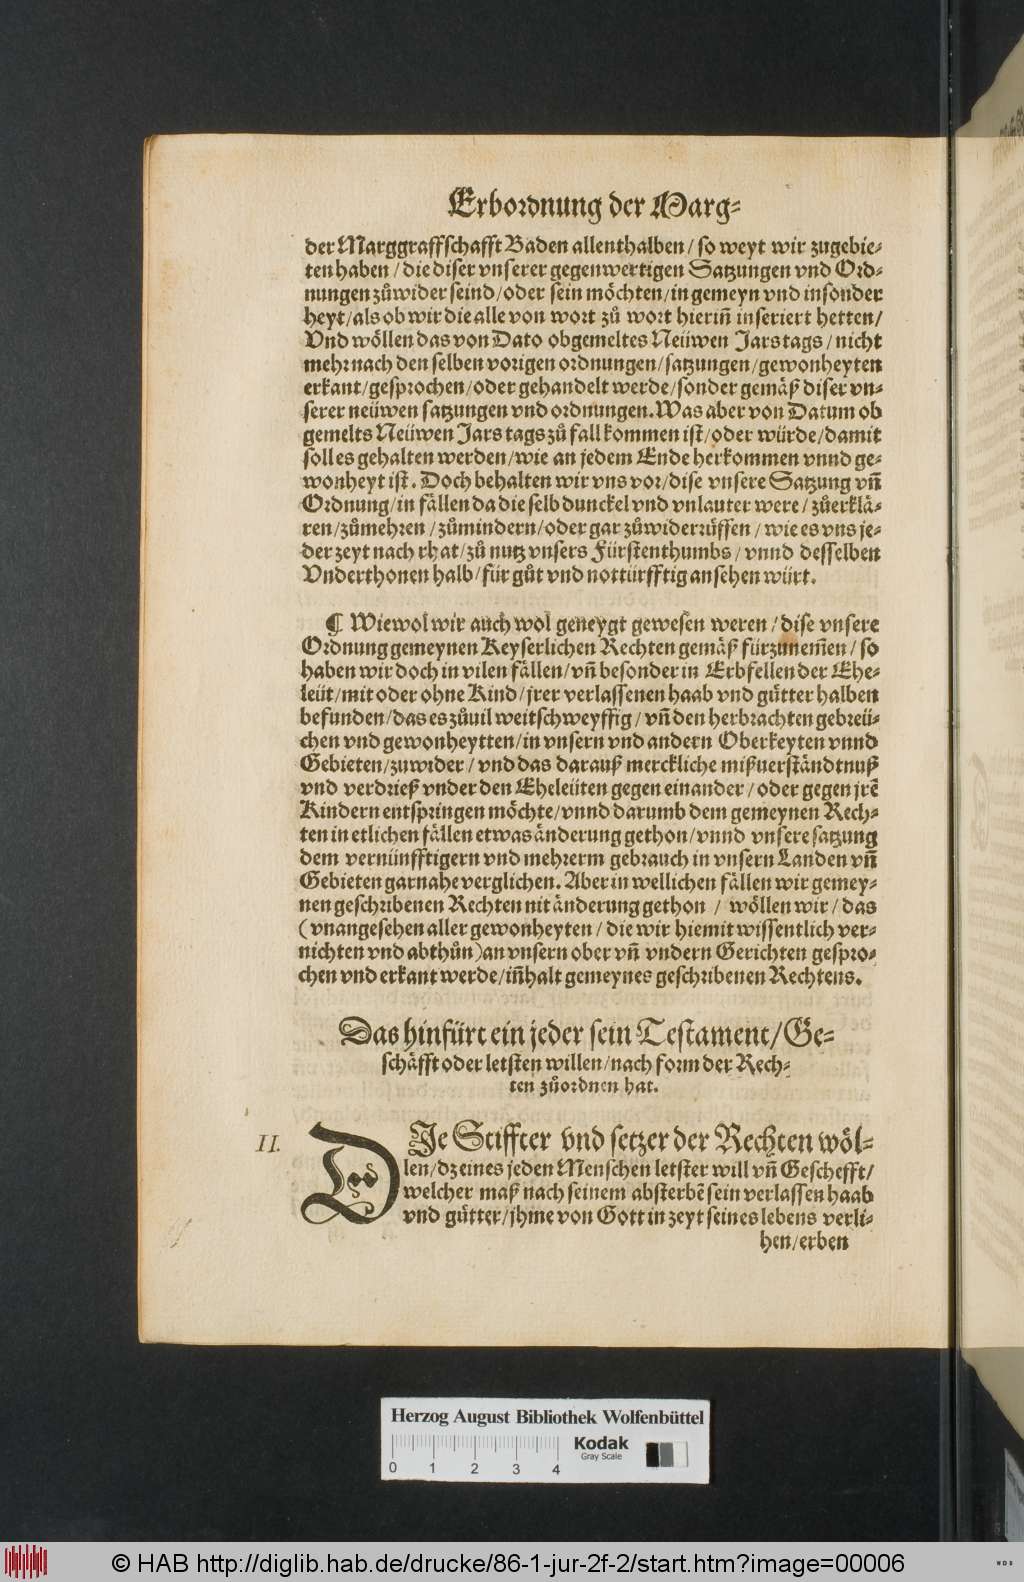 Erbordnung der Marg-
der Marggraffschafft Baden allenthalben / so weyt wir zugebie-
ten haben / die diser vnserer gegenwertigen Satzungen vnd Ord-
nungen zůwider seind / oder sein möchten / in gemeyn vnd insonder
heyt / als ob wir die alle von wort zů wort hieriñ inseriert hetten /
Vnd wöllen das von Dato obgemeltes Neüwen Jarstags / nicht
mehr nach den selben vorigen ordnungen / satzungen / gewonheyten
erkant / gesprochen / oder gehandelt werde / sonder gemäß diser vn-
serer neüwen satzungen vnd ordnungen. Was aber von Datum ob
gemelts Neüwen Jars tags zů fall kommen ist / oder würde / damit
soll es gehalten werden / wie an jedem Ende herkommen vnnd ge-
wonheyt ist. Doch behalten wir vns vor / dise vnsere Satzung vñ
Ordnung / in fällen da die selb dunckel vnd vnlauter were / zůerklä-
ren / zůmehren / zůmindern / oder gar zůwiderrüffen / wie es vns je-
der zeyt nach rhat / zů nutz vnsers Fürstenthumbs / vnnd desselben
Vnderthonen halb / für gůt vnd notturfftig ansehen würt.
¶ Wiewol wir auch wol geneygt gewesen weren / dise vnsere
Ordnung gemeynen Keyserlichen Rechten gemäß fürzunem̃en / so
haben wir doch in vilen fällen / vñ besonder in Erbfellen der Ehe-
leüt / mit oder ohne Kind / jrer verlassenen haab vnd gütter halben
befunden / das es zůuil weitschweyffig / vñ den herbrachten gebreü-
chen vnd gewonheytten / in vnsern vnd andern Oberkeyten vnnd
Gebieten / zuwider / vnd das darauß merckliche mißuerständtnuß
vnd verdrieß vnder den Eheleüten gegen einander / oder gegen jrẽ
Kindern entspringen möchte / vnnd darumb dem gemeynen Rech-
ten in etlichen fällen etwas änderung gethon / vnnd vnsere satzung
dem vernünfftigern vnd mehrerm gebrauch in vnsern Landen vñ
Gebieten gar nahe verglichen. Aber in wellichen fällen wir gemey-
nen geschribenen Rechten nit änderung gethon / wöllen wir / das
(vnangesehen aller gewonheyten / die wir hiemit wissentlich ver-
nichten vnd abthůn) an vnsern ober vñ vndern Gerichten gespro-
chen vnd erkant werde / iñhalt gemeynes geschribenen Rechtens.
Das hinfürt ein jeder sein Testament / Ge-
schäfft oder letsten willen / nach form der Rech-
ten zůordnen hat.
II.
DJe Stiffter vnd setzer der Rechten wöl-
len / dz eines jeden Menschen letster will vñ Geschefft /
welcher maß nach seinem absterbẽ sein verlassen haab
vnd gütter / jhme von Gott in zeyt seines lebens verli-
hen / erben
Herzog August Bibliothek Wolfenbüttel
Kodak
Gray Scale
0 1 2 3 4
© HAB http://diglib.hab.de/drucke/86-1-jur-2f-2/start.htm?image=00006